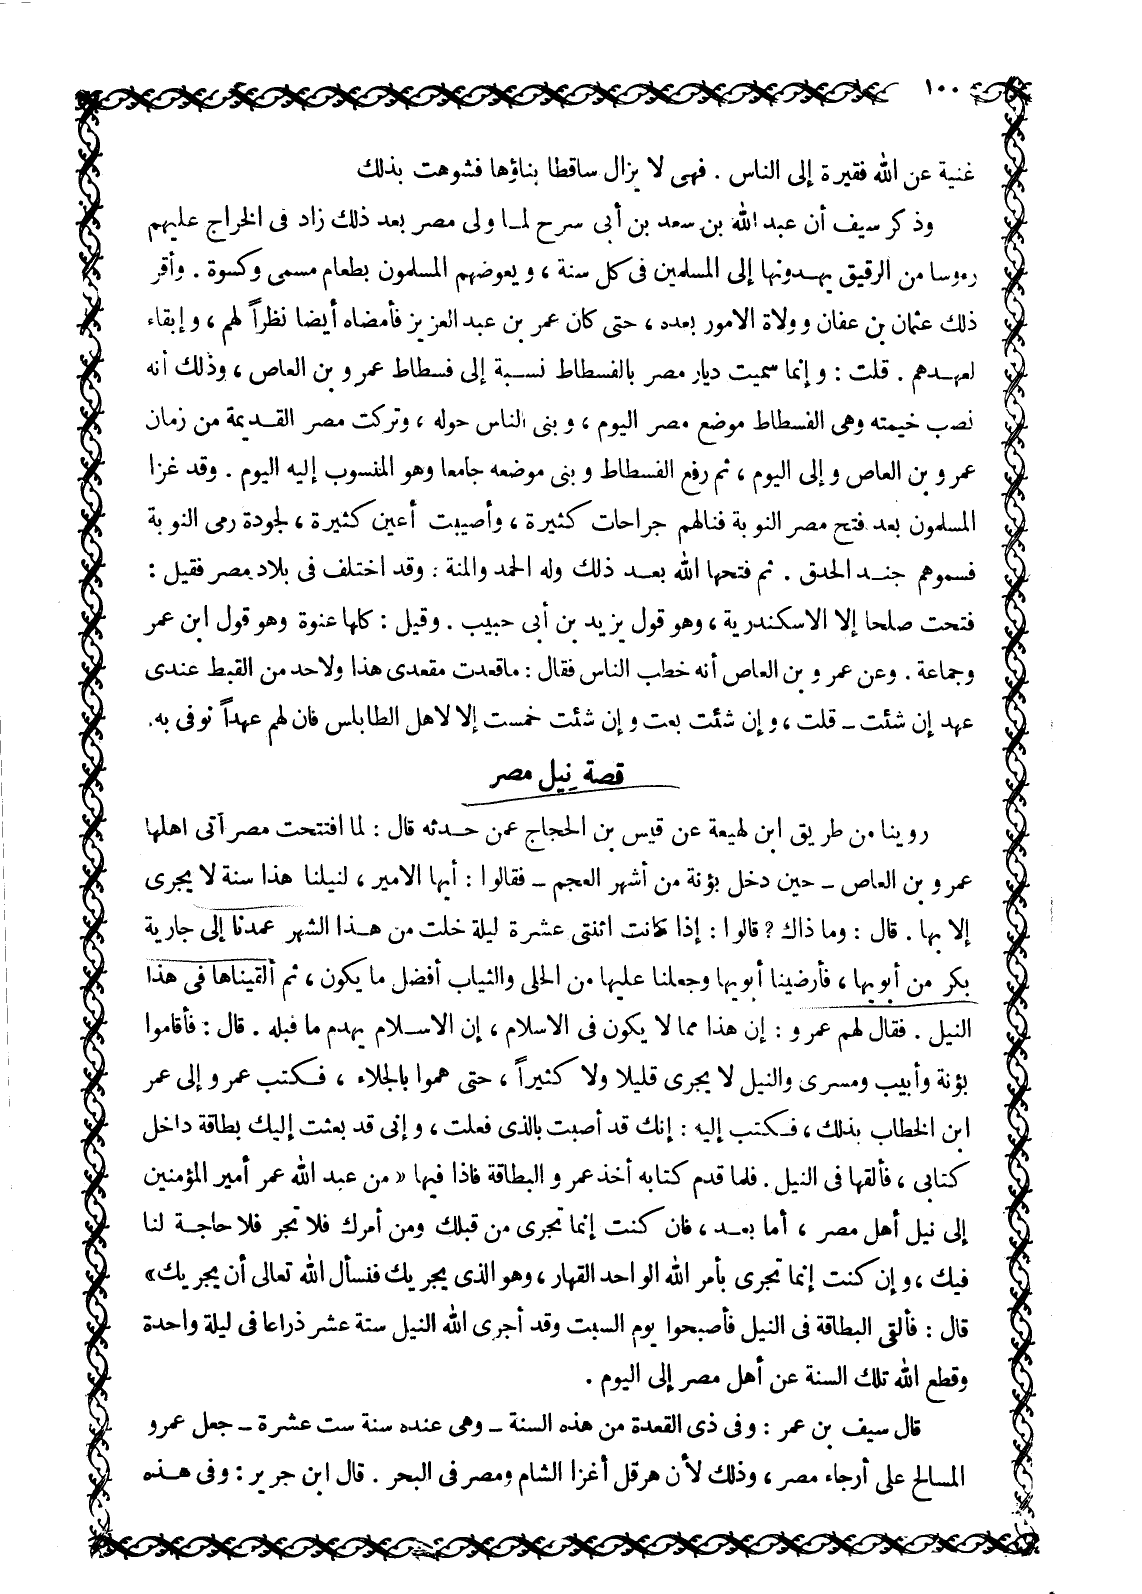 ١٠٠
غنية عن الله فقيرة إلى الناس . فهى لا يزال ساقطا بناؤها فشوهت بذلك
وذكر سيف أن عبد الله بن سعد بن أبى سرح لما ولى مصر بعد ذلك زاد فى الخراج عليهم
رءوسا من الرقيق يهدونها إلى المسلمين فى كل سنة ، ويعوضهم المسلمون بطعام مسمى وكسوة . وأقر
ذلك عثمان بن عفان وولاة الامور بعده ، حتى كان عمر بن عبد العزيز فأمضاه أيضا نظراً لهم ، وإبقاء
لعهدهم . قلت : وإنما سميت ديار مصر بالفسطاط نسبة إلى فسطاط عمرو بن العاص ، وذلك أنه
نصب خيمته وهى الفسطاط موضع مصر اليوم ، وبنى الناس حوله ، وتركت مصر القديمة من زمان
عمرو بن العاص وإلى اليوم ، ثم رفع الفسطاط وبنى موضعه جامعا وهو المنسوب إليه اليوم . وقد غزا
المسلمون بعد فتح مصر النوبة فنالهم جراحات كثيرة ، وأصيبت أعين كثيرة ، لجودة رمى النوبة
فسموهم جند الحدق . ثم فتحها الله بعد ذلك وله الحمد والمنة : وقد اختلف فى بلاد مصر فقيل :
فتحت صلحا إلا الاسكندرية ، وهو قول يزيد بن أبى حبيب . وقيل : كلها عنوة وهو قول ابن عمر
وجماعة . وعن عمرو بن العاص أنه خطب الناس فقال : ماقعدت مقعدى هذا ولاحد من القبط عندى
عهد إن شئت ـ قلت ، وإن شئت بعت وإن شئت خمست إلا لاهل الطابلس فان لهم عهداً نوفى به .
قصة نيل مصر
روينا من طريق ابن لهيعة عن قيس بن الحجاج عمن حدثه قال : لما افتتحت مصر آتى اهلها
عمرو بن العاص ـ حين دخل بؤنة من أشهر العجم ـ فقالوا : أيها الامير ، لنيلنا هذا سنة لا يجرى
إلا بها . قال : وما ذاك ؟ قالوا : إذا كانت اثنتى عشرة ليلة خلت من هذا الشهر عمدنا إلى جارية
بكر من أبويها ، فأرضينا أبويها وجعلنا عليها من الحلى والثياب أفضل ما يكون ، ثم ألقيناها فى هذا
النيل . فقال لهم عمرو : إن هذا مما لا يكون فى الاسلام ، إن الاسلام يهدم ما قبله . قال : فأقاموا
بؤنة وأبيب ومسرى والنيل لا يجرى قليلا ولا كثيراً ، حتى هموا بالجلاء ، فكتب عمرو إلى عمر
ابن الخطاب بذلك ، فكتب إليه : إنك قد أصبت بالذى فعلت ، وإنى قد بعثت إليك بطاقة داخل
كتابى ، فألقها فى النيل . فلما قدم كتابه أخذ عمرو البطاقة فاذا فيها « من عبد الله عمر أمير المؤمنين
إلى نيل أهل مصر ، أما بعد ، فان كنت إنما تجرى من قبلك ومن أمرك فلا تجر فلا حاجة لنا
فيك ، وإن كنت إنما تجرى بأمر الله الواحد القهار ، وهو الذى يجريك فنسأل الله تعالى أن يجريك »
قال : فألقى البطاقة فى النيل فأصبحوا يوم السبت وقد أجرى الله النيل ستة عشر ذراعا فى ليلة واحدة
وقطع الله تلك السنة عن أهل مصر إلى اليوم .
قال سيف بن عمر : وفى ذى القعدة من هذه السنة ـ وهى عنده سنة ست عشرة ـ جعل عمرو
المسالح على أرجاء مصر ، وذلك لأن هرقل أغزا الشام ومصر فى البحر . قال ابن جرير : وفى هذه